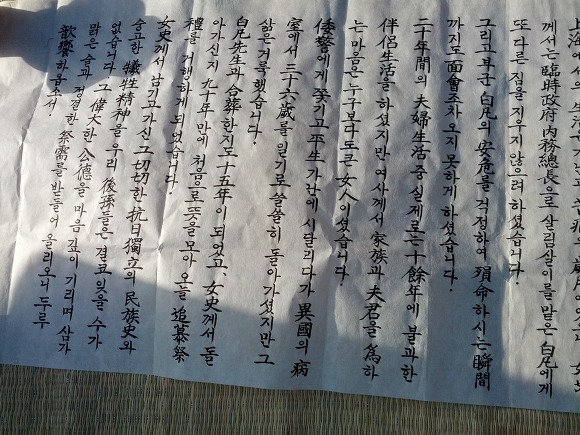 上海에서의
께서는 臨時政府 內務總長으로 살림살이를 맡은 白凡에게
또 다른 짐을 지우지 않으려 하셨습니다.
그리고 부군 白凡의 安危를 걱정하여 殞命하시는 瞬間
까지도 面會조차 오지 못하게 하셨습니다.
二十年間의 夫婦生活 중 실제로는 十餘年에 불과한
伴侶生活을 하셨지만 여사께서 家族과 夫君을 爲하
는 마음은 누구보다도 큰 女人이셨습니다.
倭警에게 쫓기고 平生 가난에 시달리다가 異國의 病
室에서 三十六歲를 일기로 쓸쓸히 돌아가셨지만 그
삶은 거룩했습니다.
白凡先生과 合葬한지도 十五年이 되었고, 女史께서 돌
아가신지 九十年만에 처음으로 뜻을 모아 오늘 追慕祭
禮를 거행하게 되었습니다.
女史께서 남기고 가신 그 切切한 抗日獨立의 民族史와
숭고한 犧牲精神을 우리 後孫들은 결코 잊을 수가
없습니다. 그 偉大한 公德을 마음 깊이 기리며 삼가
맑은 술과 정결한 祭需를 받들어 올리오니 두루
歆饗하옵소서.